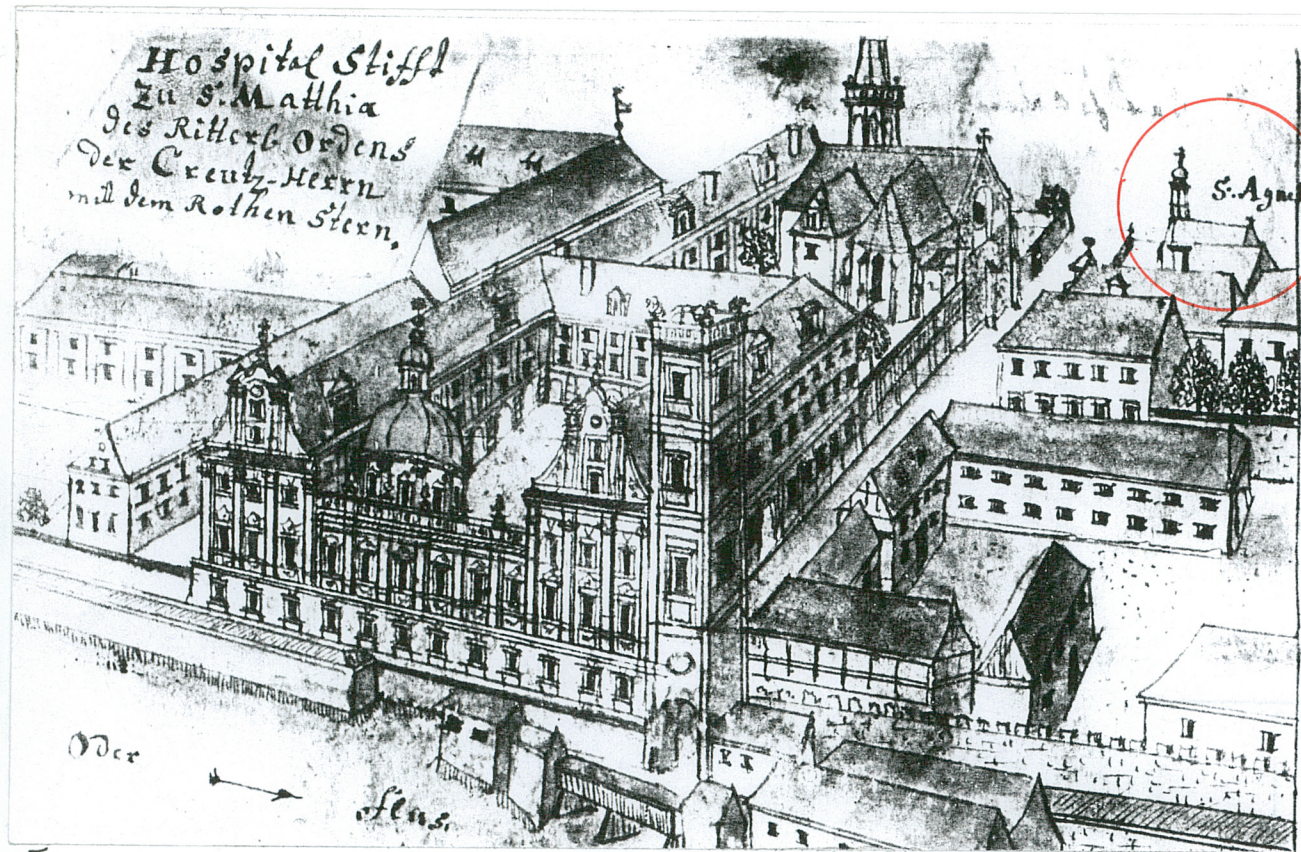 Hospital Stifft
Zu S. Matthia
des Ritterl. Ordens
der Creutz-Herrn
mit dem Rothen Stern.
S. Agne
Oder
flus.